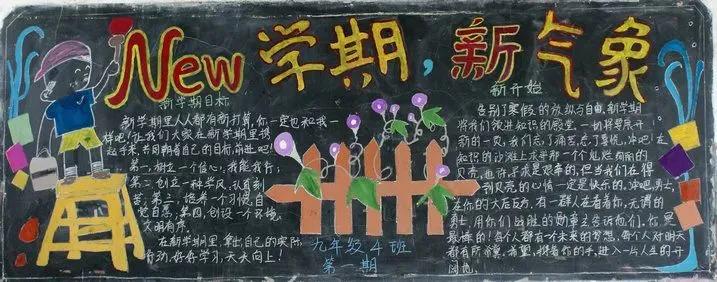 New学期,新气象
新学期目标
新学期里人人都有新打算,你一定也和我一
样吧!让我们大家在新学期里携
起手来,共同朝着自己的目标,前进吧!
第一,树立一个信心,我能我行;
第二,创立一种学风,认真刻
苦;第三,培养一个习惯,自
觉自愿;第四,创设一个环境,
文明有序。
在新学期里,拿出自己的实际
行动,好好学习,天天向上!
九年级4班
第一期
新开始
告别了寒假的放松与自由,新学期
将我们领进知识的殿堂,一切将要展开
新的一页,我们忘了痛苦,忘了喜悦,冲吧!在
知识的沙滩上寻那一个个
贝壳,也许寻求是艰辛的,但当我们在得
到贝壳的心情一定是快乐的,冲吧,勇士,
在你的大后方,有一群人在看着你,无谓的
勇士,用你们战胜的勋章去告诉他们,你是
最棒的!每个人都有一个未来的梦想,每个人对明天
都有所希望,携着你的手,进入一片人生的开
阔地。